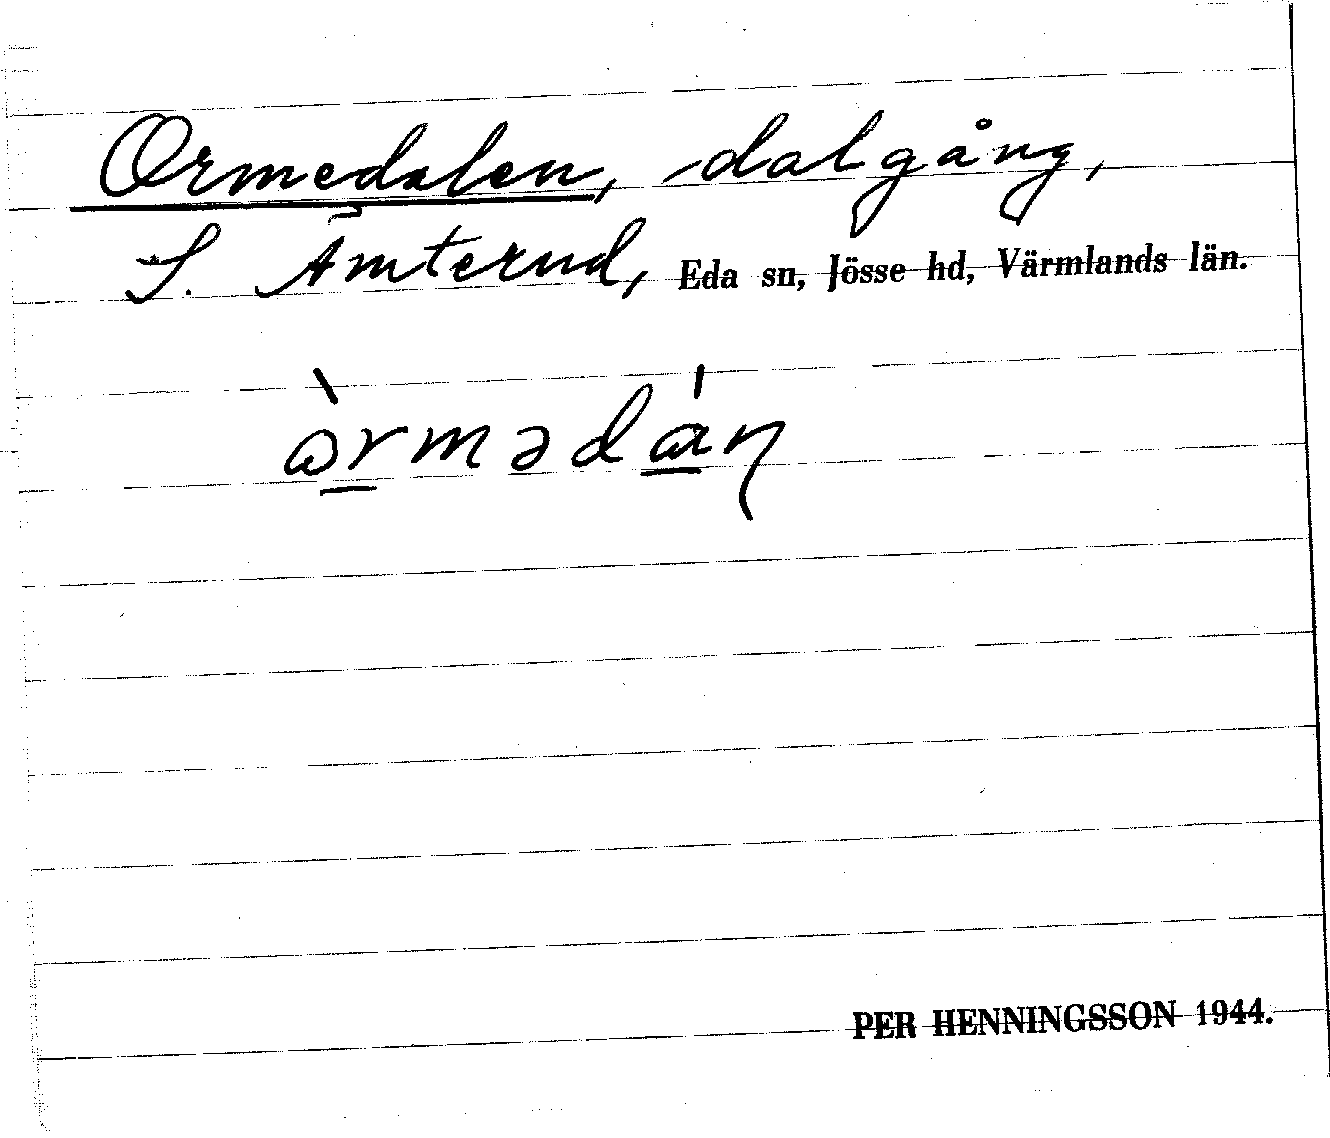 Ormedalen, dalgång,
S. Ämterud, Eda sn, Jösse hd, Värmlands län.
PER HENNINGSSON 1944.